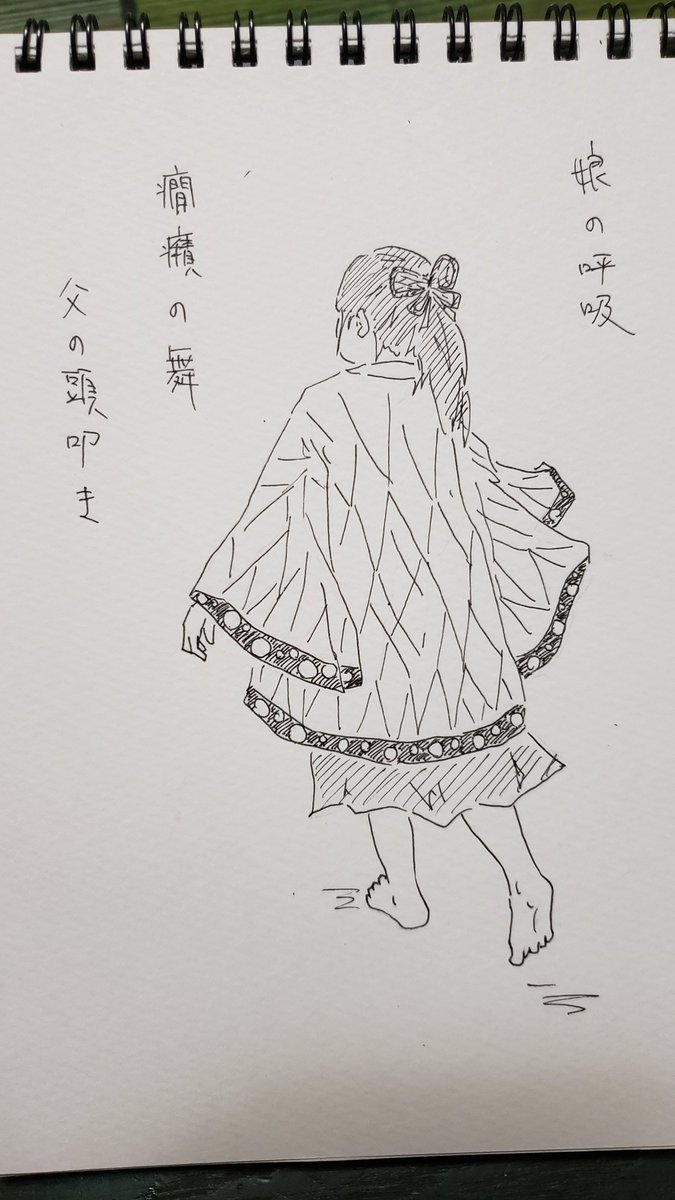 娘の呼吸
癇癪の舞
父の頭叩き